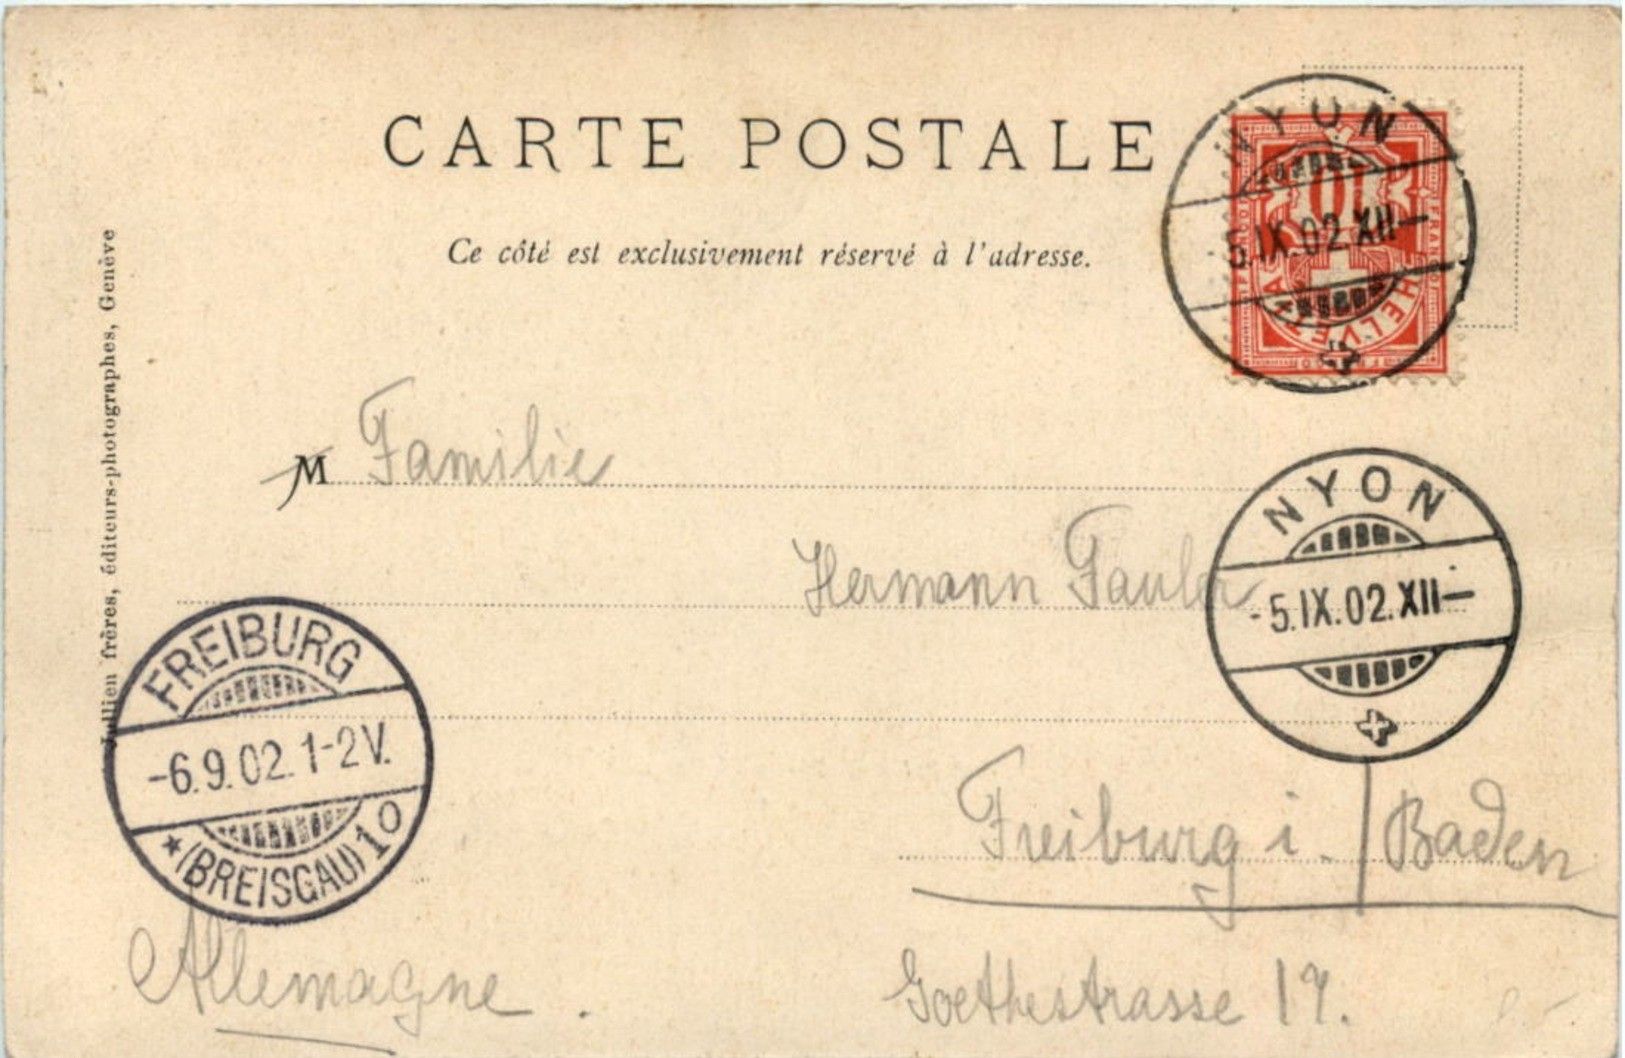 CARTE POSTALE
Ce côté est exclusivement réservé à l'adresse.
Jullien frères, éditeurs-photographes, Genève
NYON
-5.IX.02.XII-
10
FRANCO
HELVETIA
M Familie
Hermann Fauler
NYON
-5.IX.02.XII-
FREIBURG
-6.9.02.1-2V.
* (BREISGAU) 1o
Freiburg i. / Baden
Allemagne.
Goethestrasse 17.